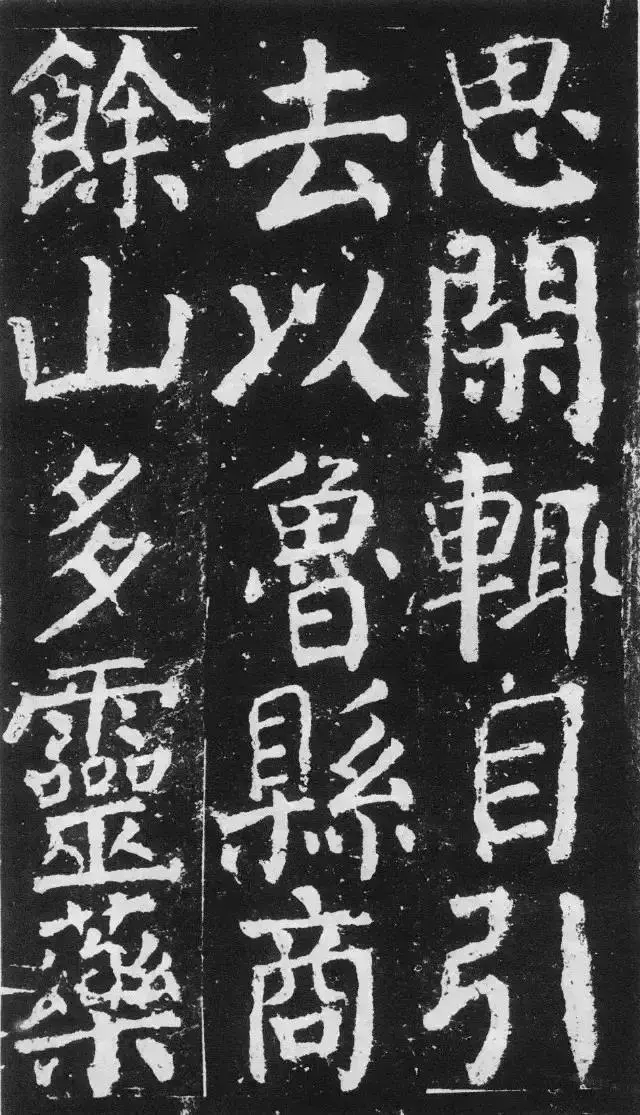 思閑輒自引
去以魯縣商
餘山多靈藥